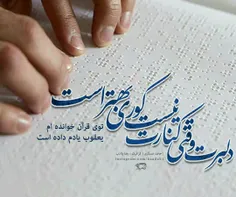 دلبرت وقتی کنارت نیست کوری بهتر است
توی قرآن خوانده ام
یعقوب یادم داده است